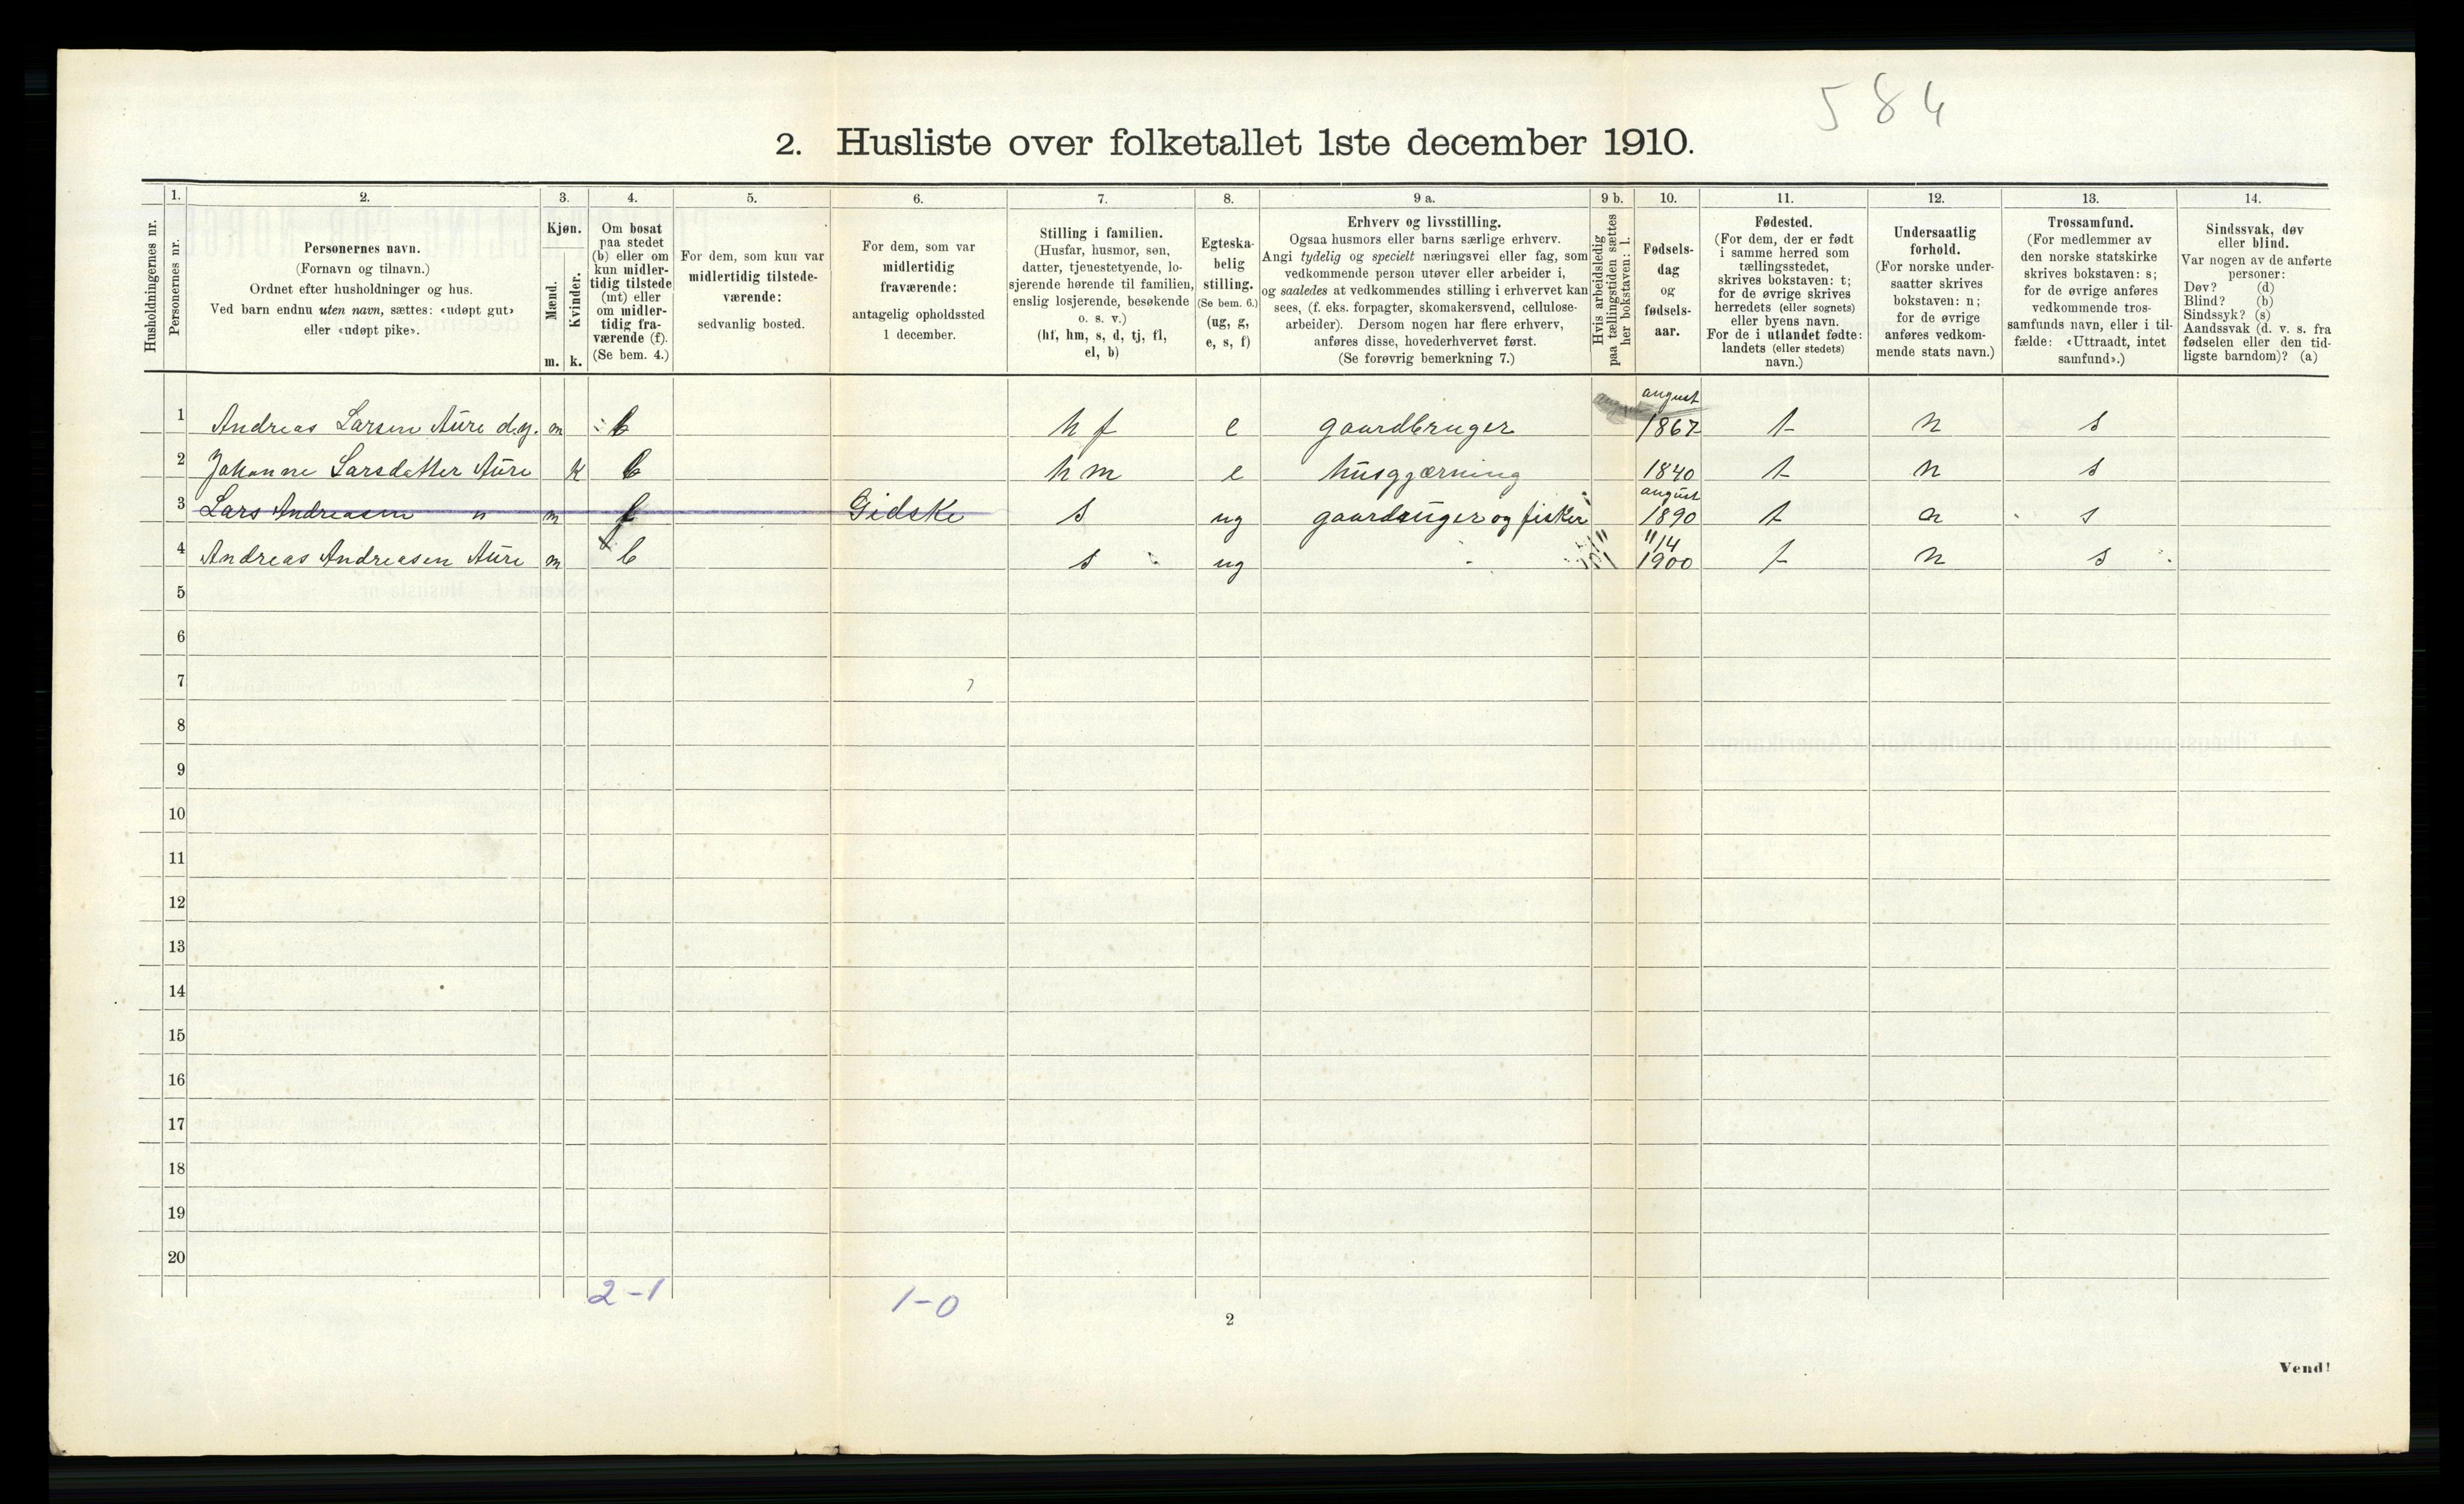 584
2. Husliste over folketallet 1ste december 1910.
Husholdningernes nr.
1.
Personernes nr.
2.
Personernes navn.
(Fornavn og tilnavn.)
Ordnet efter husholdninger og hus.
Ved barn endnu uten navn, sættes: «udøpt gut»
eller «udøpt pike».
3.
Kjøn.
Mænd.
m.
Kvinder.
k.
4.
Om bosat
paa stedet
(b) eller om
kun midler-
tidig tilstede
(mt) eller
om midler-
tidig fra-
værende (f).
(Se bem. 4.)
5.
For dem, som kun var
midlertidig tilstede-
værende:
sedvanlig bosted.
6.
For dem, som var
midlertidig
fraværende:
antagelig opholdssted
1 december.
7.
Stilling i familien.
(Husfar, husmor, søn,
datter, tjenestetyende, lo-
sjerende hørende til familien,
enslig losjerende, besøkende
o. s. v.)
(hf, hm, s, d, tj, fl,
el, b)
8.
Egteska-
belig
stilling.
(Se bem. 6.)
(ug, g,
e, s, f)
9 a.
Erhverv og livsstilling.
Ogsaa husmors eller barns særlige erhverv.
Angi tydelig og specielt næringsvei eller fag, som
vedkommende person utøver eller arbeider i,
og saaledes at vedkommendes stilling i erhvervet kan
sees, (f. eks. forpagter, skomakersvend, cellulose-
arbeider). Dersom nogen har flere erhverv,
anføres disse, hovederhvervet først.
(Se forøvrig bemerkning 7.)
9 b.
Hvis arbeidsledig
paa tællingstiden sættes
her bokstaven: l.
10.
Fødsels-
dag
og
fødsels-
aar.
11.
Fødested.
(For dem, der er født
i samme herred som
tællingsstedet,
skrives bokstaven: t;
for de øvrige skrives
herredets (eller sognets)
eller byens navn.
For de i utlandet fødte:
landets (eller stedets)
navn.)
12.
Undersaatlig
forhold.
(For norske under-
saatter skrives
bokstaven: n;
for de øvrige
anføres vedkom-
mende stats navn.)
13.
Trossamfund.
(For medlemmer av
den norske statskirke
skrives bokstaven: s;
for de øvrige anføres
vedkommende tros-
samfunds navn, eller i til-
fælde: «Uttraadt, intet
samfund».)
14.
Sindssvak, døv
eller blind.
Var nogen av de anførte
personer:
Døv? (d)
Blind? (b)
Sindssyk? (s)
Aandssvak (d. v. s. fra
fødselen eller den tid-
ligste barndom)? (a)
1 Andreas Larsen Aure d.y. m b hf e gaardbruger august 1867 t n s
2 Johanne Larsdatter Aure k b hm e husgjærning 1840 t n s
3 Lars Andreasen " m f Gidske s ug gaardsuger og fisker august 1890 t n s
4 Andreas Andreasen Aure m b s ug - 11/4 1900 t n s
5
6
7
8
9
10
11
12
13
14
15
16
17
18
19
20
2-1 1-0
2
Vend!